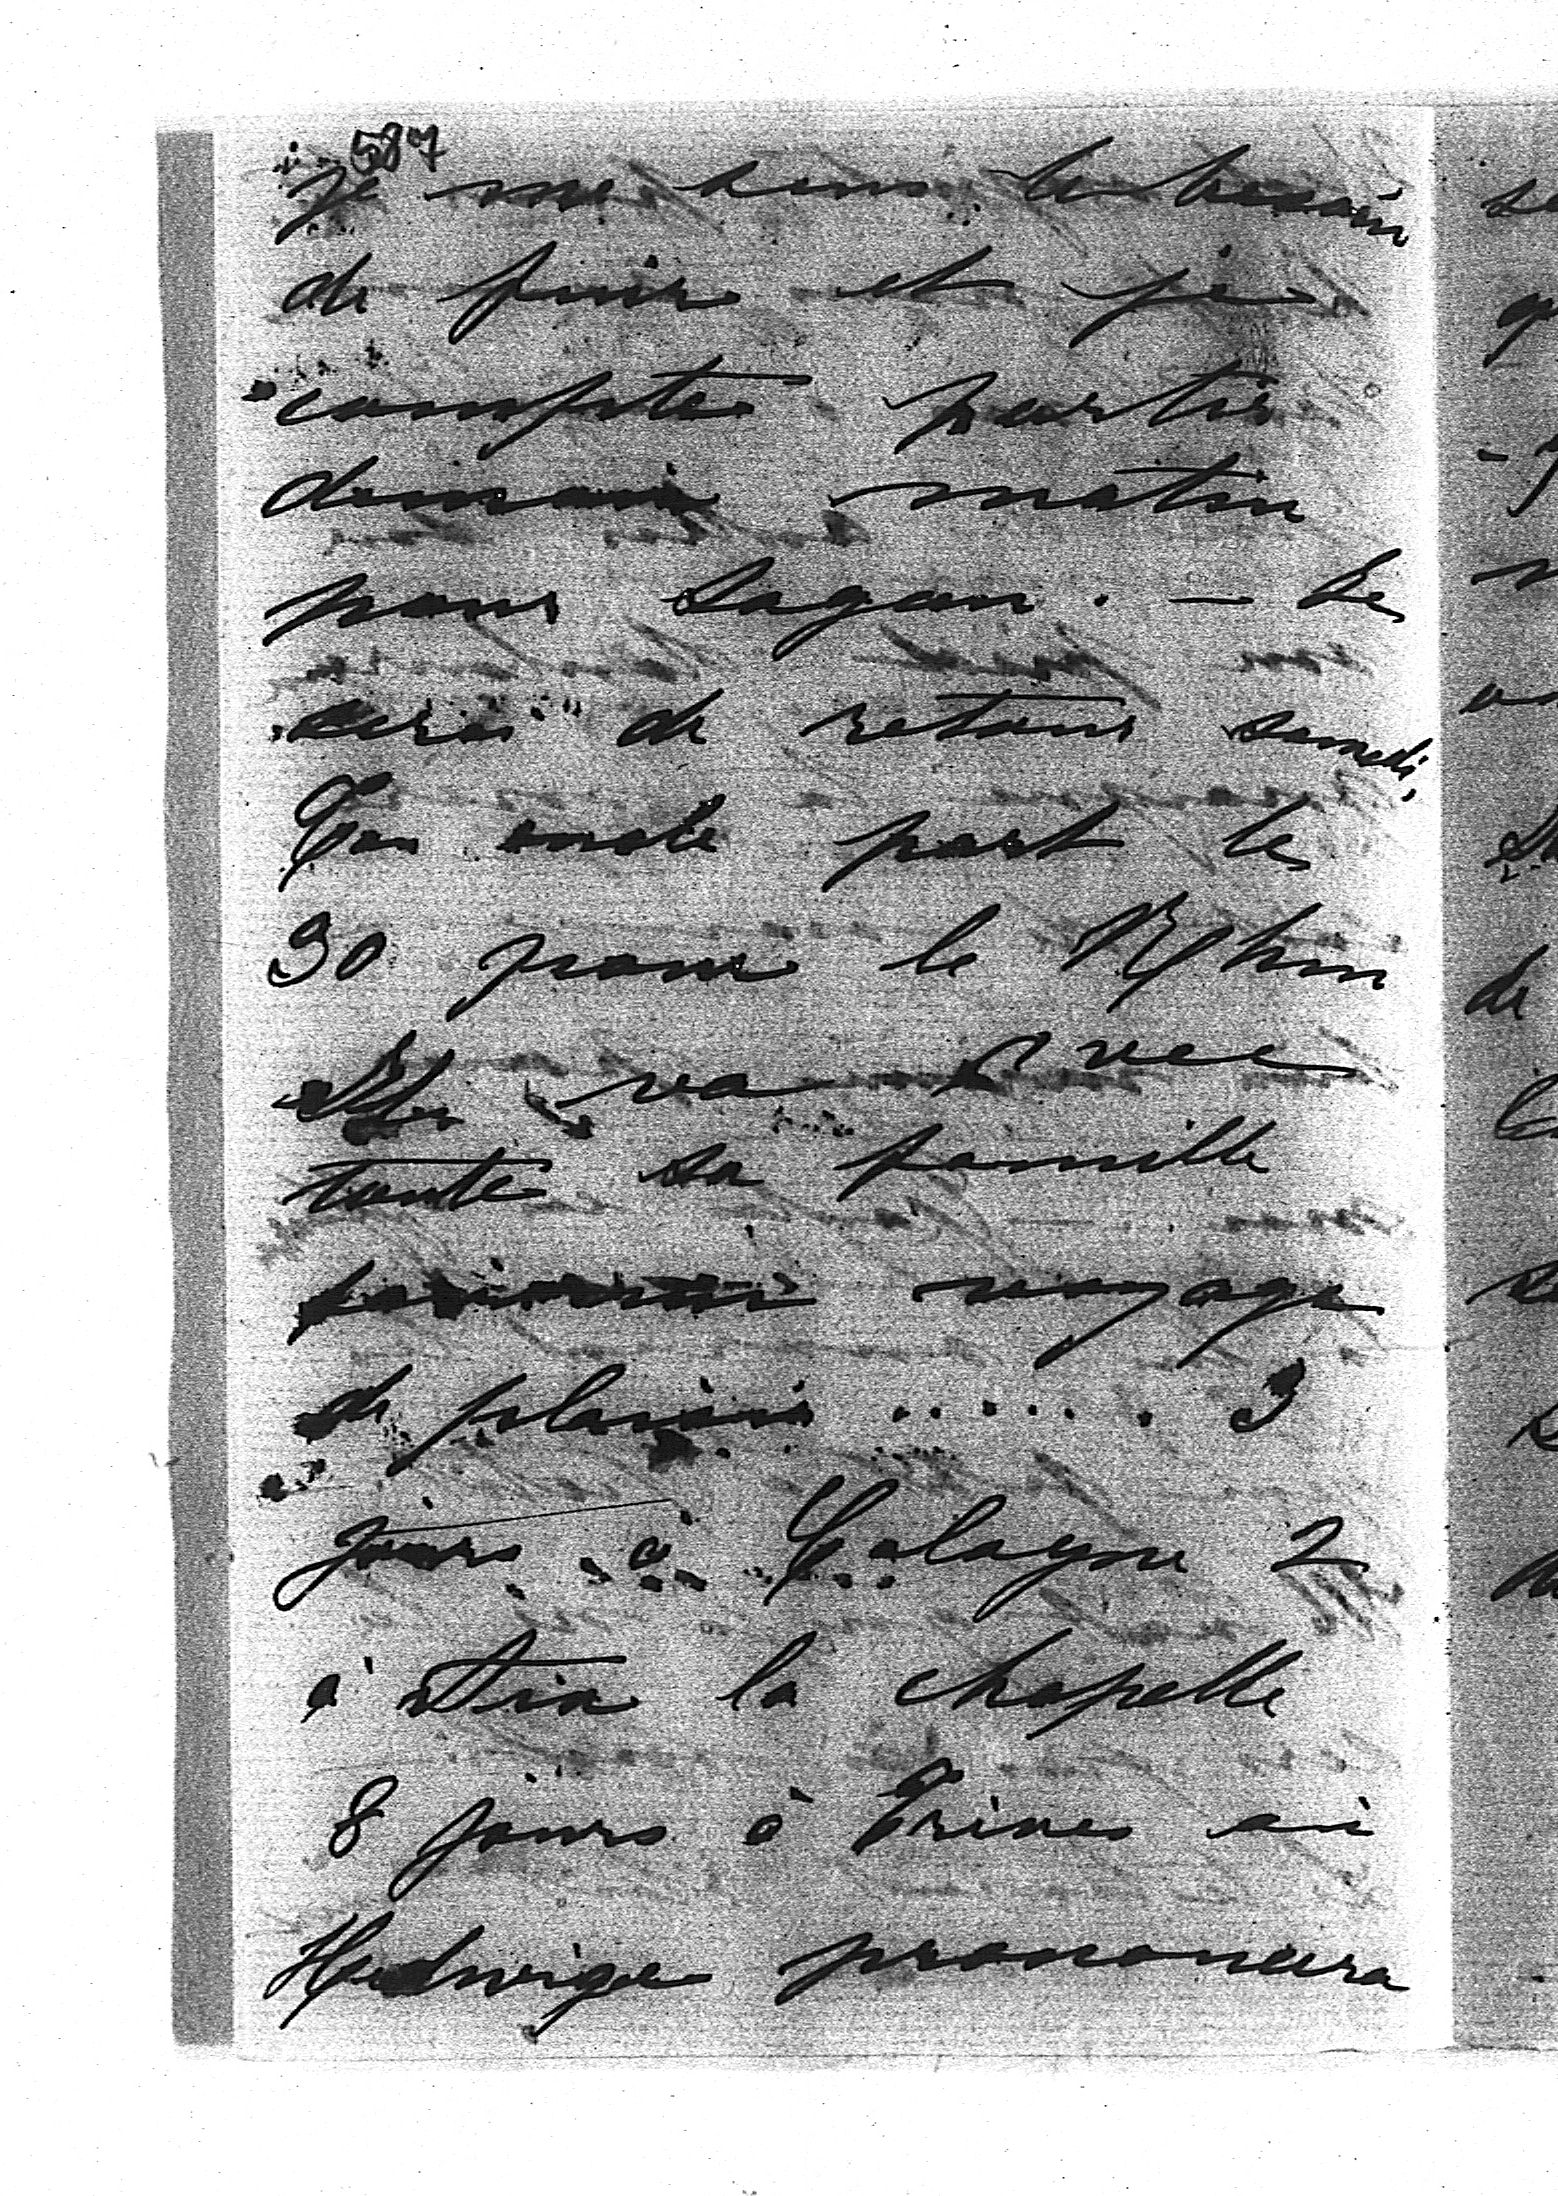 587
je me sens le besoin
de fuire et je
compte partir
demain matin
pour Sagan. – Je
serai de retour samedi,
Ton oncle part le
30 pour le Rhin
Il va avec
toute sa famille
voyage
de plaisir ...... 3
jours à Cologne 2
à Aix la chapelle
8 jours à Trèves où
Hedwige prononcera